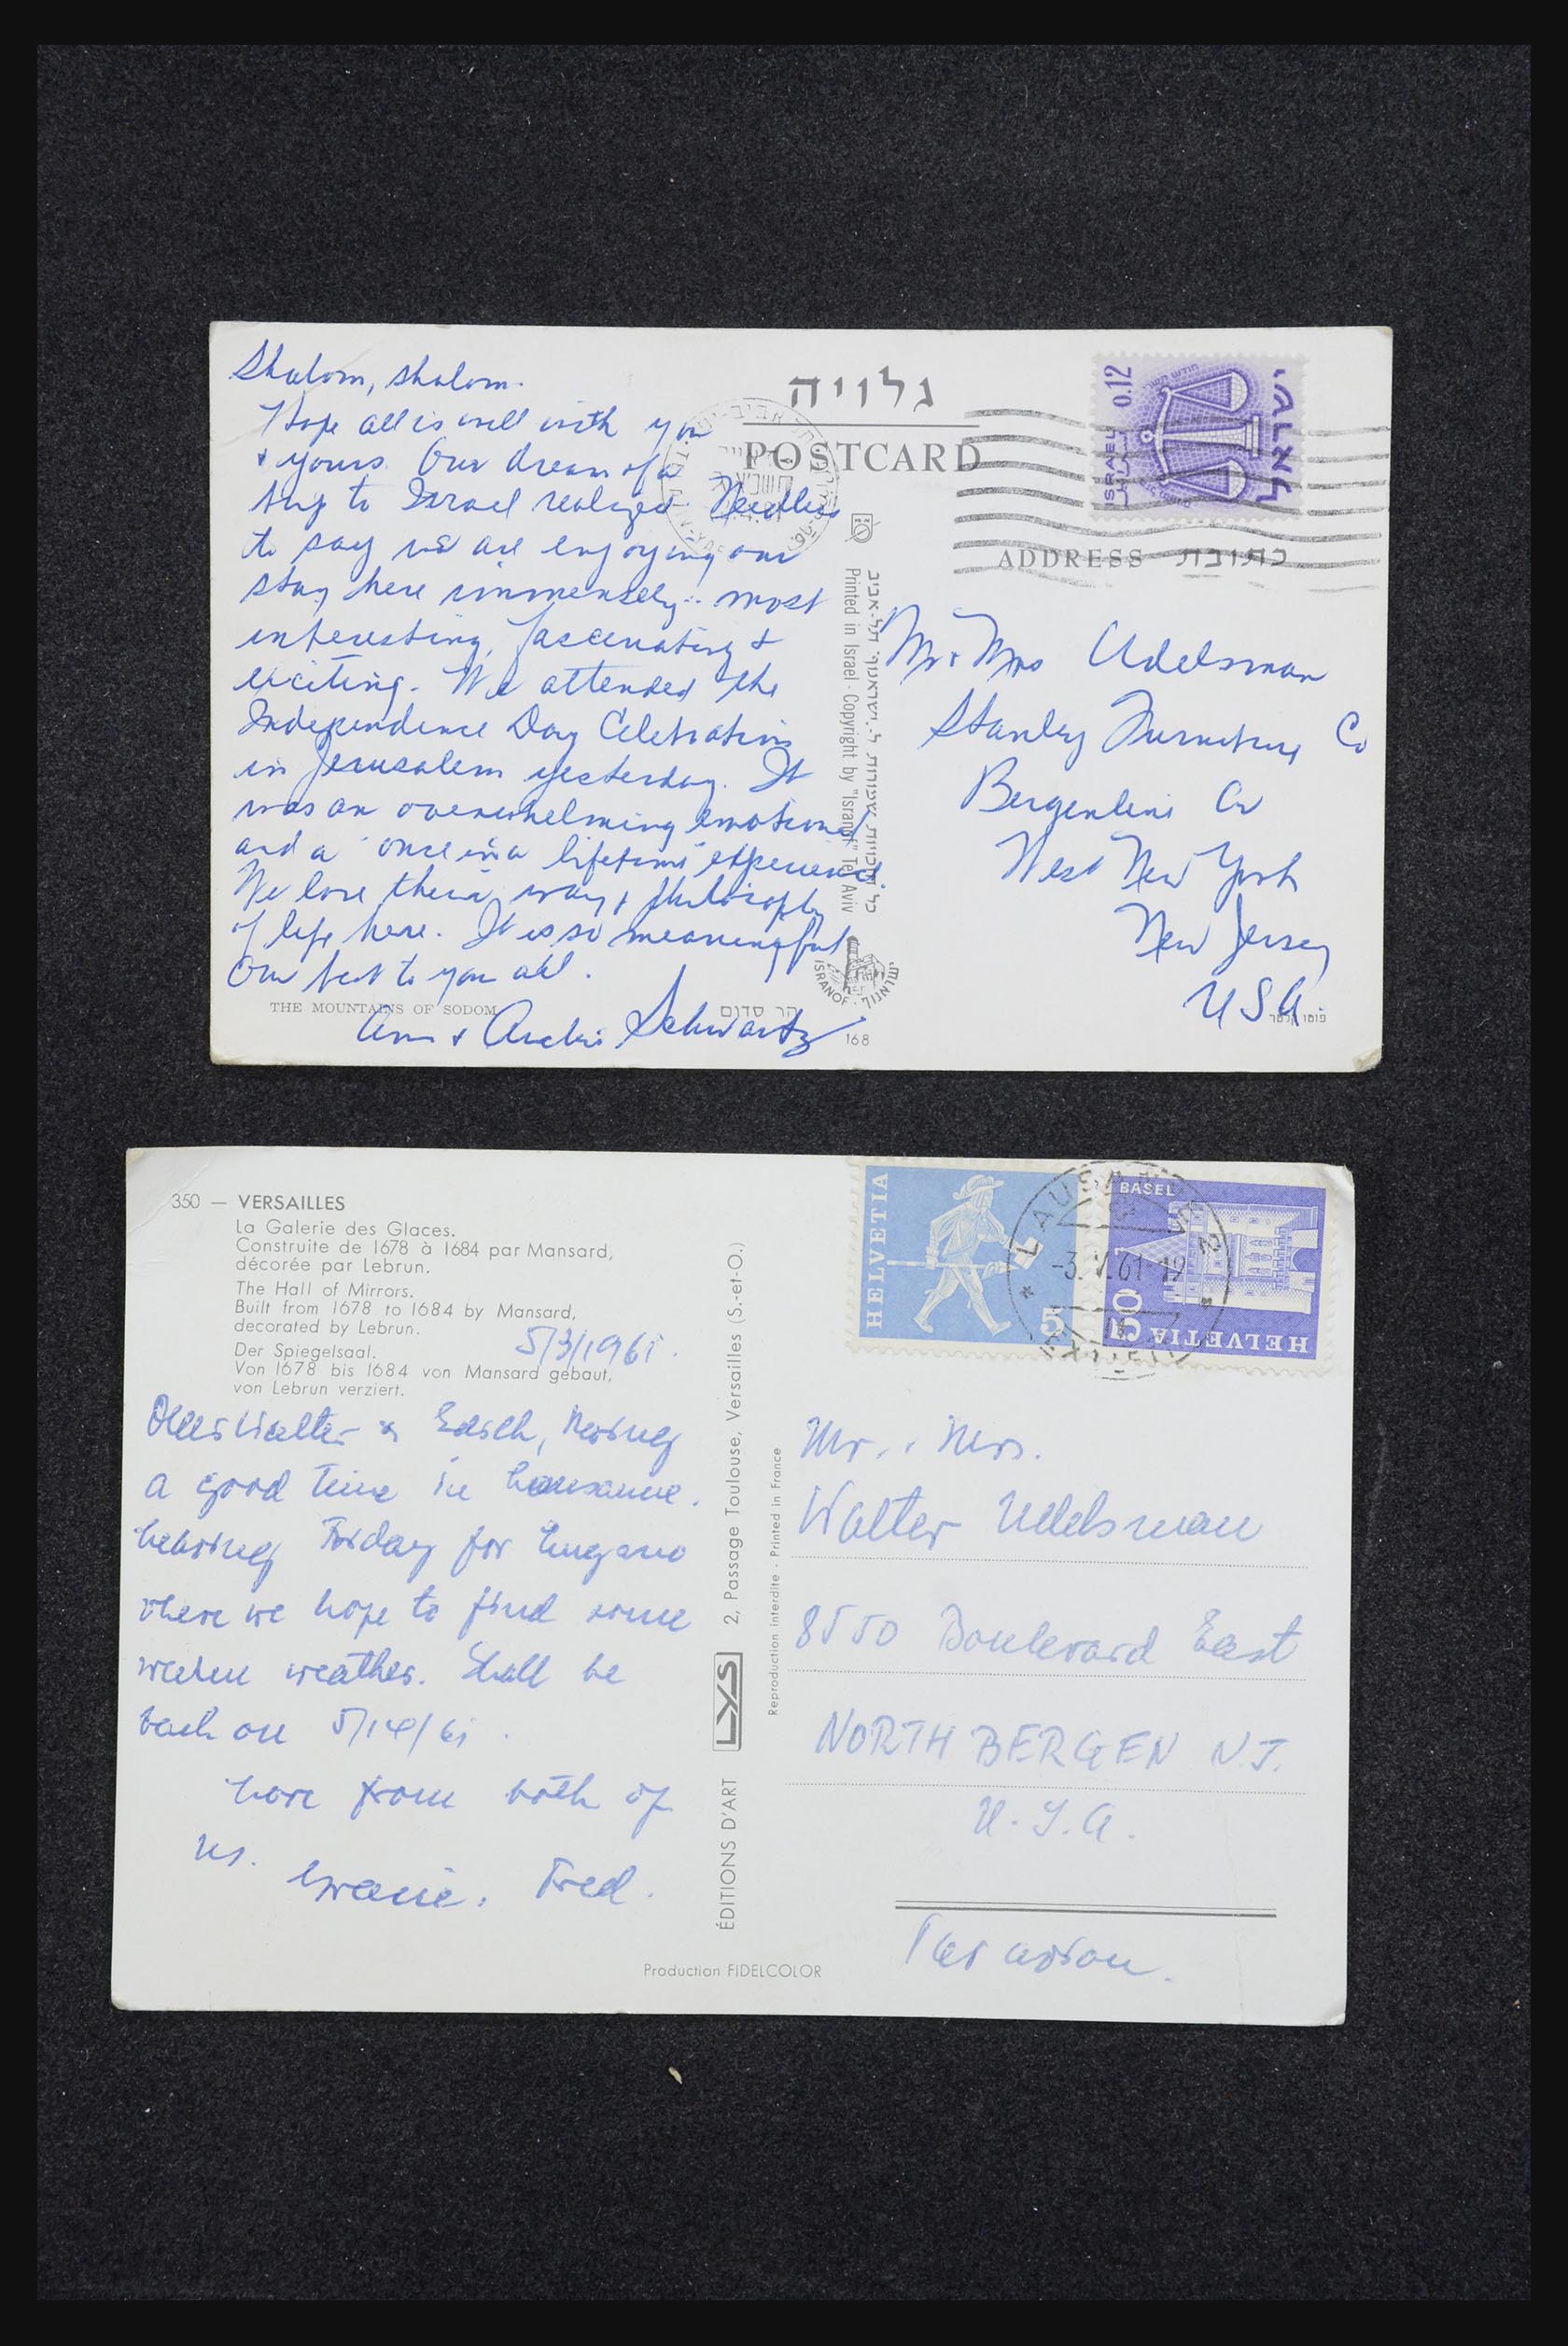 Shalom, shalom.
Hope all is well with you
& yours. Our dream of a
trip to Israel realized. Needless
to say we are enjoying our
stay here immensely - most
interesting, fascinating &
exciting. We attended the
Independence Day Celebration
in Jerusalem yesterday. It
was an overwhelming emotional
and a "once in a lifetime" experience.
We love their way & philosophy
of life here. It is so meaningful
Our best to you all.
Ann & Archie Schwartz
THE MOUNTAINS OF SODOM
הר סדום
168
גלויה
POSTCARD
ISRAEL 0.12
ישראל
ADDRESS כתובת
Printed in Israel - Copyright by "Isranof" Tel Aviv
כל הזכויות שמורות ל.ישראנוף תל-אביב
ISRANOF · ישראנוף
Mr & Mrs Udelsman
Stanley Furniture Co
Bergenline Av
West New York
New Jersey
USA.
350 — VERSAILLES
La Galerie des Glaces.
Construite de 1678 à 1684 par Mansard,
décorée par Lebrun.
The Hall of Mirrors.
Built from 1678 to 1684 by Mansard,
decorated by Lebrun.
Der Spiegelsaal.
Von 1678 bis 1684 von Mansard gebaut,
von Lebrun verziert.
5/3/1961.
Walter & Edith, Having
a good time in Lausanne.
Leaving Friday for Lugano
where we hope to find some
warm weather. Shall be
back on 5/14/61.
Love from both of
us.
Fred.
ÉDITIONS D'ART LYS 2, Passage Toulouse, Versailles (S.-et-O.)
Reproduction interdite - Printed in France
Production FIDELCOLOR
HELVETIA 5
BASEL
HELVETIA 50
LAUSANNE 2
-3.V.61-19
Mr. & Mrs.
Walter Udelsman
8550 Boulevard East
NORTH BERGEN N.J.
U.S.A.
Par avion.